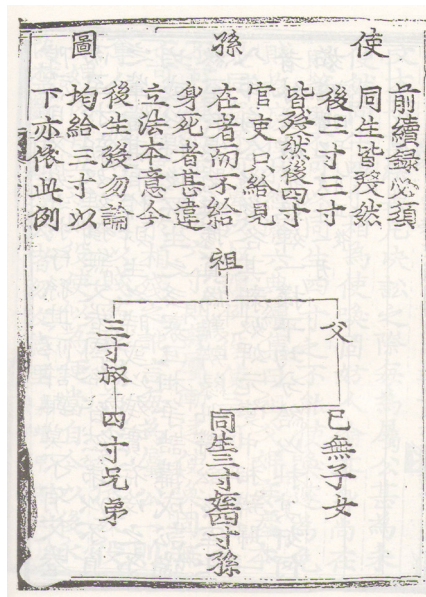 使孫圖
前續錄必須
同生皆歿然
後三寸三寸
皆歿然後四寸
官吏只給見
在者而不給
身死者甚違
立法本意今
後生歿勿論
均給三寸以
下亦依此例
祖
父
三寸叔
己無子女
同生三寸姪四寸孫
四寸兄弟